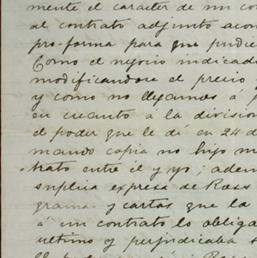 mente el caracter de un co
al contrato adjunto acom
pro-forma para que pudie
Como el negocio indicad
modificandose el precio
y como no llegamos á
en cuanto á la division
el poder que le dí en 24 d
mando copia no hizo m
trato entre el y yo; adem
suplica expresa de Ross
grama y cartas que la
á un contrato lo obliga
ultimo y perjudicaba